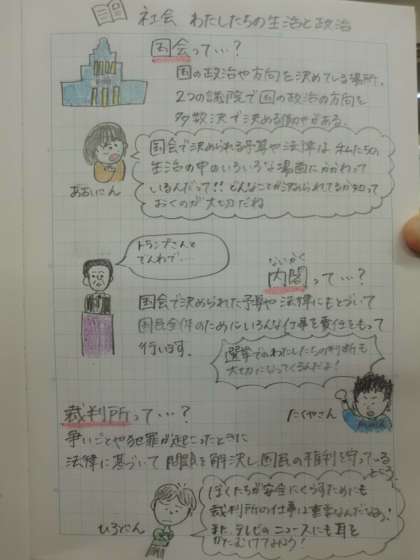 社会 わたしたちの生活と政治
国会って…？
国の政治や方向を決めている場所。
2つの議院で国の政治の方向を
多数決で決める働きがある。
国会で決められる予算や法律は、私たちの
生活の中のいろいろな場面にかかわって
いるんだって!! どんなことが決められてるか知って
おくのが大切だね
あおいさん
トランプさんと
でんわで…
ないかく
内閣って…？
国会で決められた予算や法律にもとづいて
国民全体のためにいろんな仕事を責任をもって
行います。
選挙でのわたしたちの判断も
大切になってくるんだよ！
たくやさん
裁判所って…？
争いごとや犯罪が起こったときに
法律に基づいて問題を解決し国民の権利を守っている
ところ。
ぼくたちが安全にくらすためにも
裁判所の仕事は重要なんだなぁ！
また、テレビのニュースにも耳を
かたむけてみよう！
ひろとさん